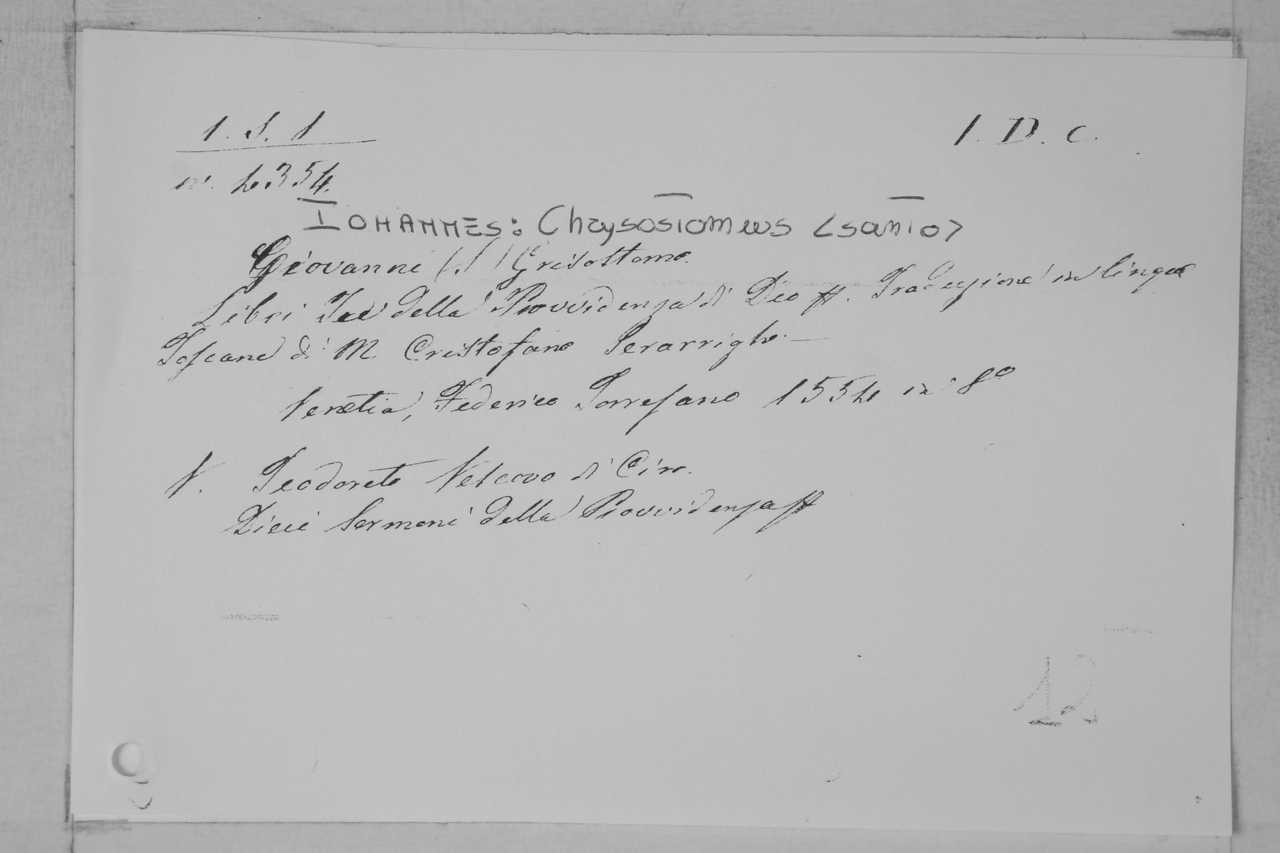 1. S. 1
1. D. C.
n°. 4354.
IOHANNES: Chrysostomus <santo>
Giovanni (S.) Grisostomo.
Libri Tre della Provvidenza di Deo ff. Traduzione in lingua
Toscana di M. Cristofano Serarrighi
Venetia, Federico Torresano 1554 in 8°
V. Teodoreto Vescovo di Ciro.
Dieci Sermoni della Provvidenza ff
12